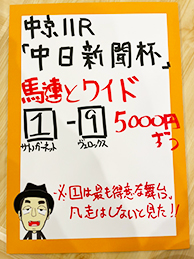 中京11R
「中日新聞杯」
馬連とワイド
1-9 5000円
ずつ
サトノガーネット ヴェロックス
※1は最も得意な舞台。
凡走はしないと見た!!